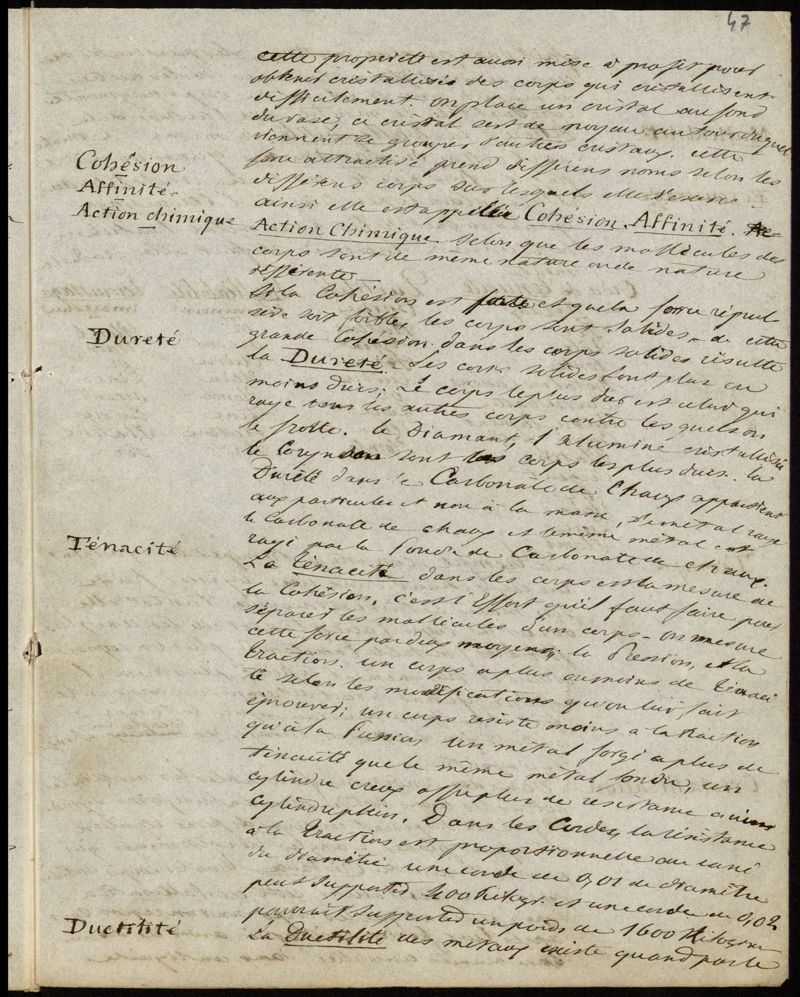 47
cette proprieté est aussi mise à profit pour
obtenir cristallisés des corps qui cristallisent
difficilement. on place un cristal au fond
du vase, ce cristal sert de noyau autour duquel
viennent se grouper d'autres cristaux. cette
force attractive prend differens noms selon les
differens corps sur lesquels elle s'exerce.
ainsi elle est appellée Cohésion. Affinité. Ac-
Action Chimique selon que les mollécules des
corps sont de même nature ou de nature
differente
Cohésion
Affinité-
Action chimique
Si la Cohésion est forte et que la force répul
sive soit foible, les corps sont solides - de cette
grande Cohesion dans les corps solides résulte
la Dureté. Les corps solides sont plus ou
moins durs; Le corps le plus dur est celui qui
raye tous les autres corps contre lesquels on
le frotte. le Diamant, l'alumine cristallisée
le Coryndon sont les corps les plus durs. la
Dureté dans le Carbonate de Chaux appartient
aux particules et non à la masse, le métal raye
le Carbonate de chaux et le même métal est
rayé par la Poudre de Carbonate de chaux.
Dureté
La tènacité dans les corps est la mesure de
la Cohésion, c'est l'Effort qu'il faut faire pour
séparer les mollécules d'un corps - on mesure
cette force par deux moyens; la Pression, et la
traction. un corps a plus ou moins de ténaci
té selon les modifications qu'on lui fait
éprouver; un corps resiste moins à la traction
qu'à la Pression un métal forgé a plus de
tènacité que le même métal fondu, un
cylindre creux offre plus de resistance qu'un
cylindre plein. Dans les Cordes, la résistance
à la traction est proportionnelle au carré
du diamètre une corde de 0,01 de diamètre
peut supporter 400 Kilogr. et une corde de 0,02
pourait supporter un poids de 1600 Kilogram
Ténacité
La Ductilité des métaux existe quand par le
Ductilité